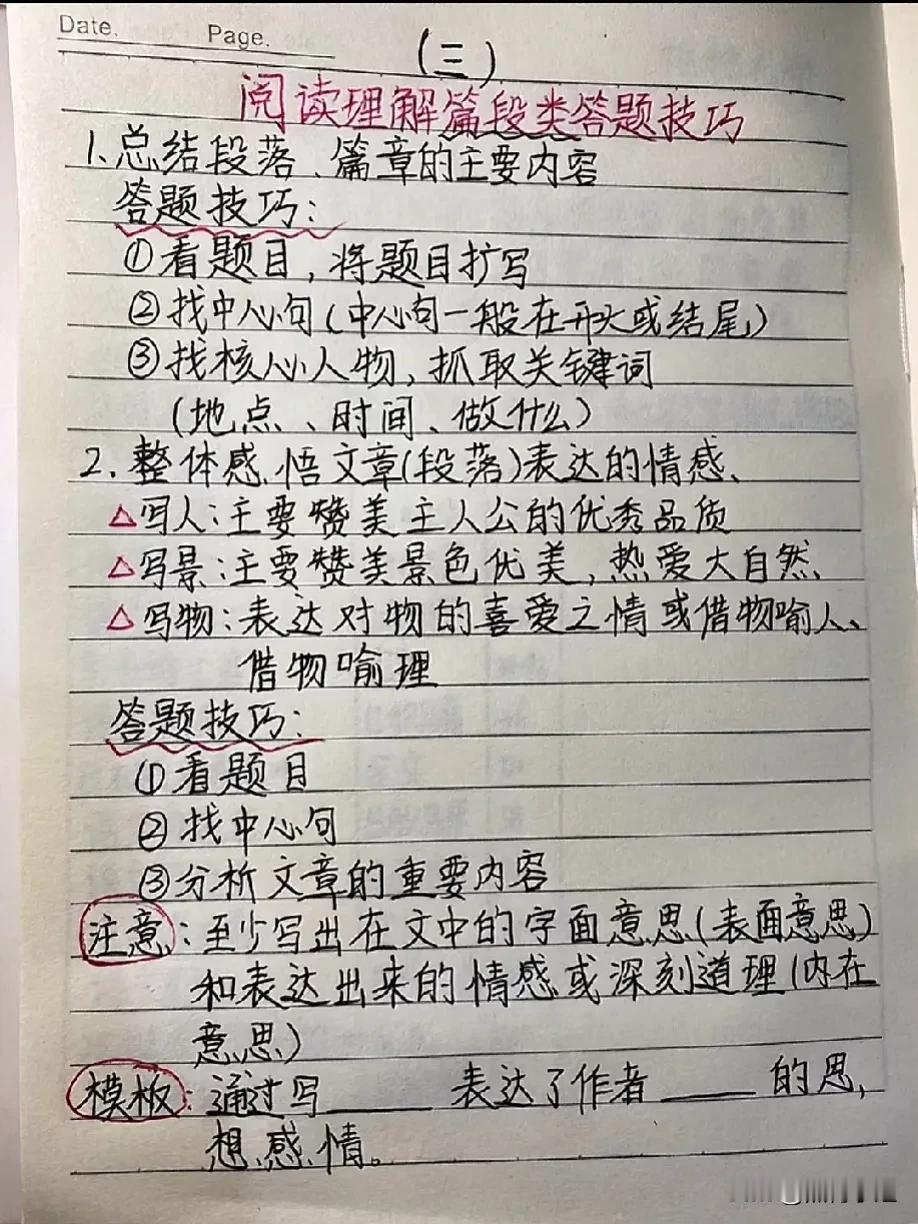 Date. Page.
(三)
阅读理解篇段类答题技巧
1.总结段落、篇章的主要内容
答题技巧:
①看题目,将题目扩写
②找中心句(中心句一般在开头或结尾)
③找核心人物,抓取关键词
(地点、时间、做什么)
2.整体感悟文章(段落)表达的情感、
△写人:主要赞美主人公的优秀品质
△写景:主要赞美景色优美,热爱大自然、
△写物:表达对物的喜爱之情或借物喻人、
借物喻理
答题技巧:
①看题目
②找中心句
③分析文章的重要内容
注意:至少写出在文中的字面意思(表面意思)
和表达出来的情感或深刻道理(内在
意思)
模板:通过写______表达了作者_____的思,
想感情。